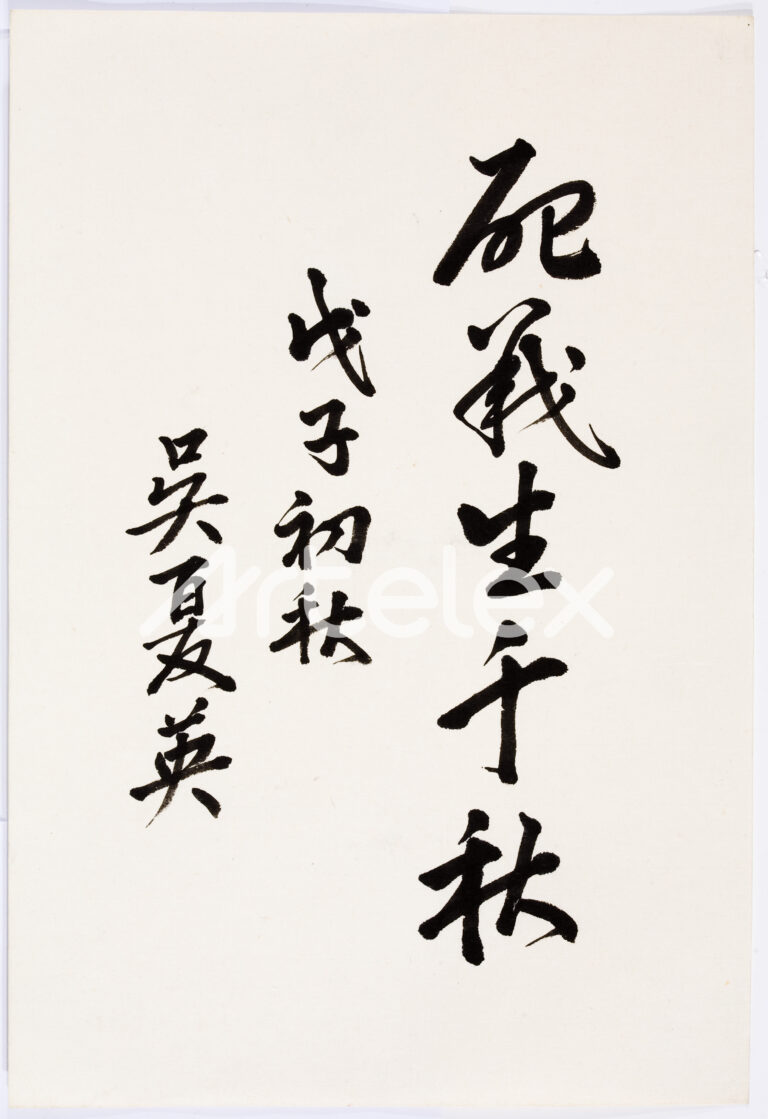 死義生千秋
戊子初秋
吳夏英
Artelex